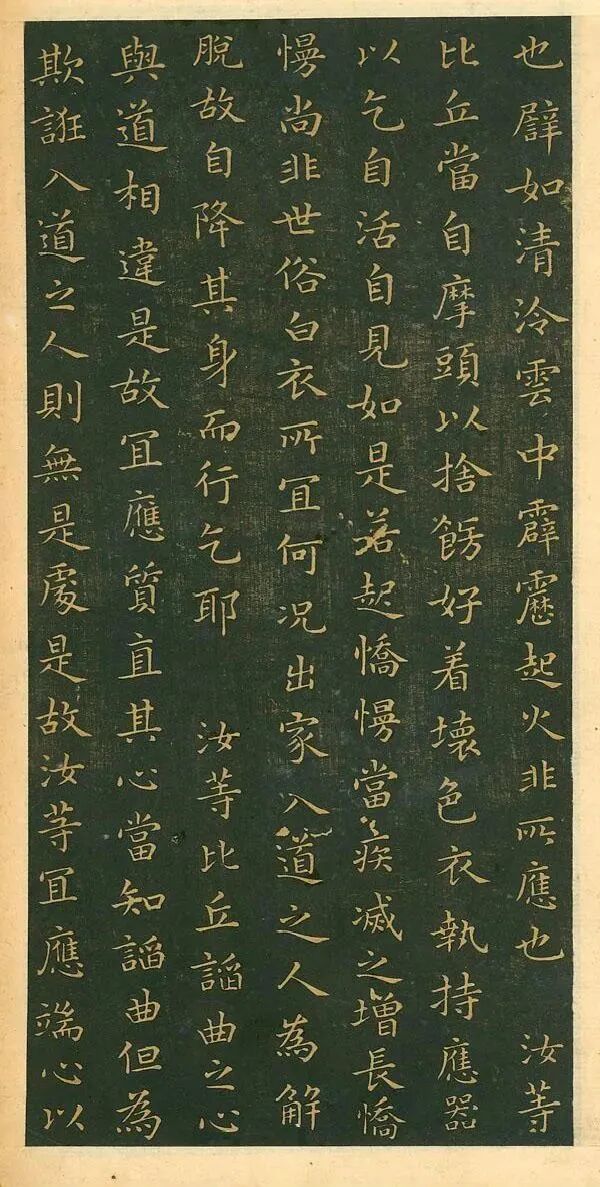 也譬如清泠雲中霹靂起火非所應也 汝等
比丘當自摩頭以捨餝好着壞色衣執持應器
以乞自活自見如是若起憍慢當疾滅之增長憍
慢尚非世俗白衣所冝何況出家入道之人為解
脫故自降其身而行乞耶 汝等比丘諂曲之心
與道相違是故冝應質直其心當知諂曲但為
欺誑入道之人則無是處是故汝等冝應端心以